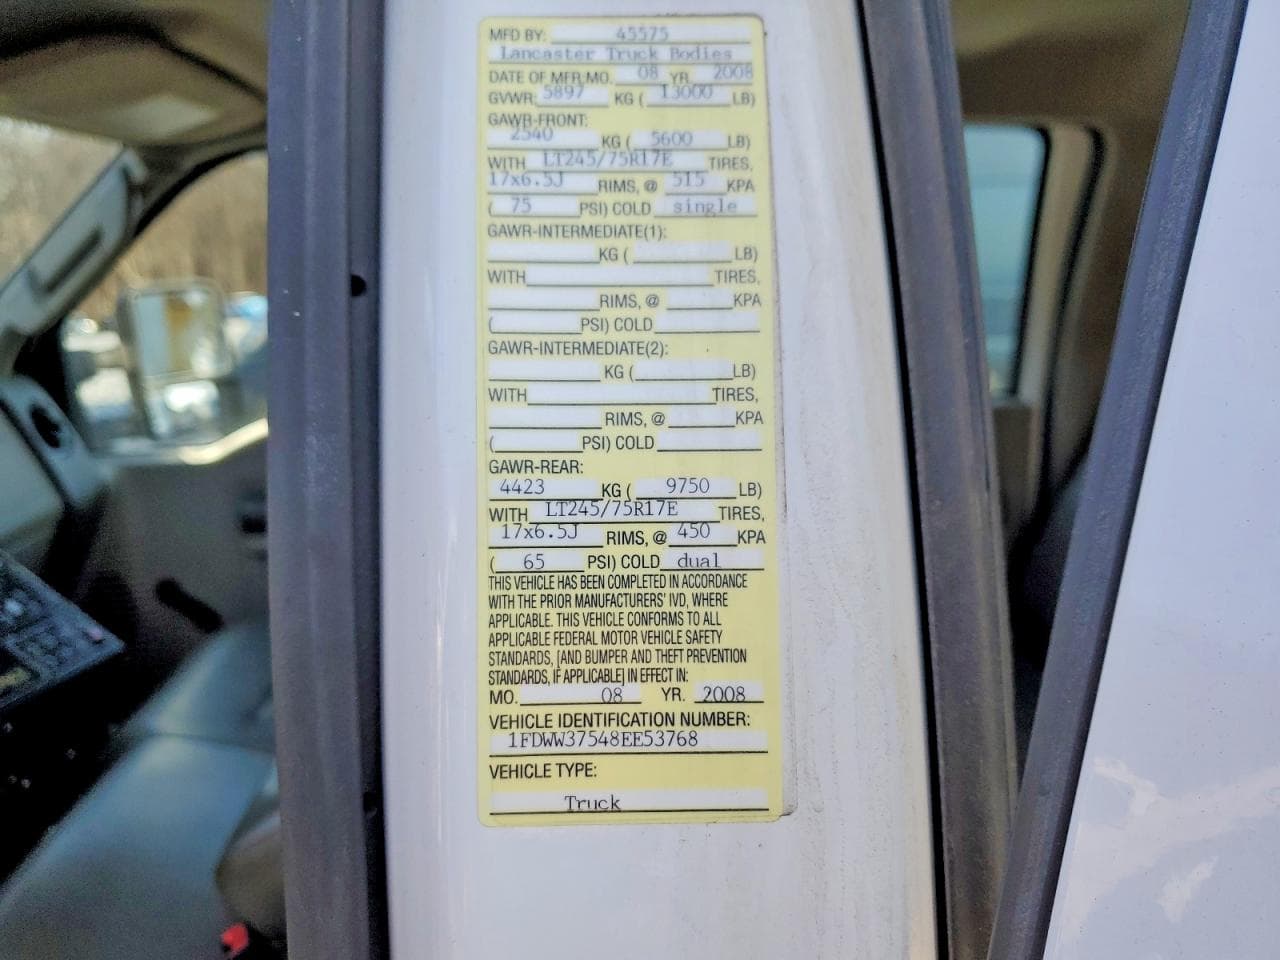 MFD BY: 45575
Lancaster Truck Bodies
DATE OF MFR MO. 08 YR. 2008
GVWR 5897 KG ( 13000 LB)
GAWR-FRONT:
2540 KG ( 5600 LB)
WITH LT245/75R17E TIRES,
17x6.5J RIMS, @ 515 KPA
( 75 PSI) COLD single
GAWR-INTERMEDIATE(1):
KG ( LB)
WITH TIRES,
RIMS, @ KPA
( PSI) COLD
GAWR-INTERMEDIATE(2):
KG ( LB)
WITH TIRES,
RIMS, @ KPA
( PSI) COLD
GAWR-REAR:
4423 KG ( 9750 LB)
WITH LT245/75R17E TIRES,
17x6.5J RIMS, @ 450 KPA
( 65 PSI) COLD dual
THIS VEHICLE HAS BEEN COMPLETED IN ACCORDANCE
WITH THE PRIOR MANUFACTURERS' IVD, WHERE
APPLICABLE. THIS VEHICLE CONFORMS TO ALL
APPLICABLE FEDERAL MOTOR VEHICLE SAFETY
STANDARDS, [AND BUMPER AND THEFT PREVENTION
STANDARDS, IF APPLICABLE] IN EFFECT IN:
MO. 08 YR. 2008
VEHICLE IDENTIFICATION NUMBER:
1FDWW37548EE53768
VEHICLE TYPE:
Truck